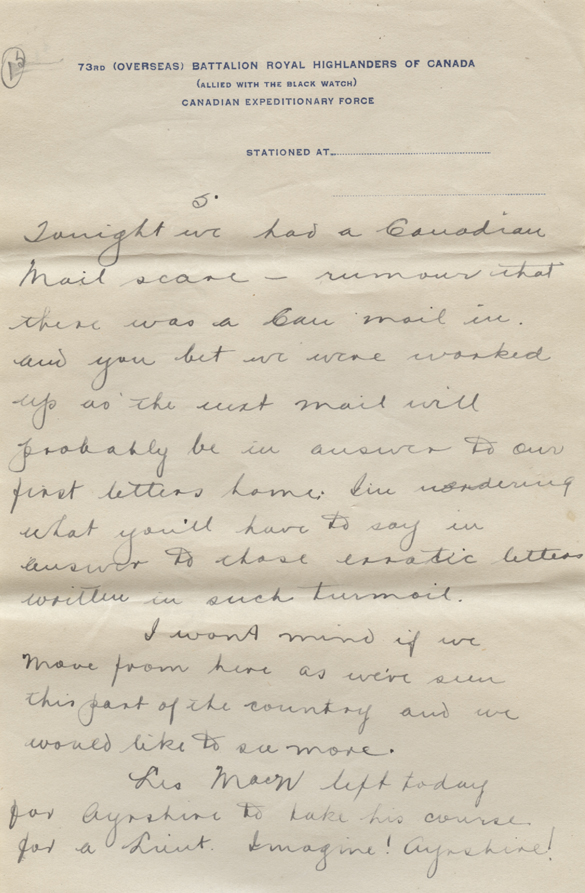 73RD (OVERSEAS) BATTALION ROYAL HIGHLANDERS OF CANADA
(ALLIED WITH THE BLACK WATCH)
CANADIAN EXPEDITIONARY FORCE
STATIONED AT
5.
Tonight we had a Canadian
Mail scare – rumour that
there was a Can mail in.
and you bet we were worked
up as the next mail will
probably be in answer to our
first letters home. I'm wondering
what you'll have to say in
answer to those erratic letters
written in such turmoil.
I won't mind if we
move from here as we've seen
this part of the country and we
would like to see more.
Les MacN left today
for Ayrshire to take his course
for a Lieut. Imagine! Ayrshire!